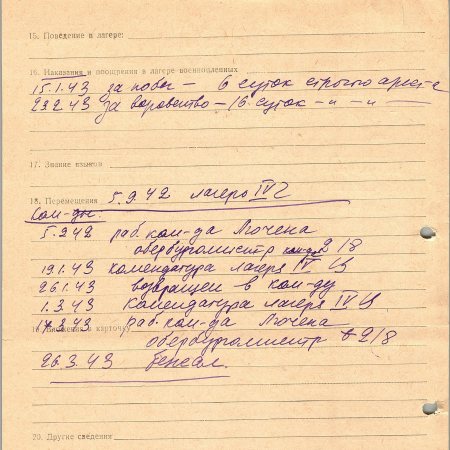 15. Поведение в лагере:
16. Наказания и поощрения в лагере военнопленных
15.1.43 за побег — 6 суток строгого ареста
23.2.43 за воровство — 16 суток — и — и —
17. Знание языков
18. Перемещения 5.9.42 лагерь IV C
Ком-ды:
5.9.42 раб. ком-да
обербургомистр 2/8
19.1.43 комендатура лагеря IV
26.1.43 возвращен в ком-ду
1.3.43 комендатура лагеря IV
раб. ком-да
карточку
обербургомистр 2/8
26.3.43 бежал.
20. Другие сведения